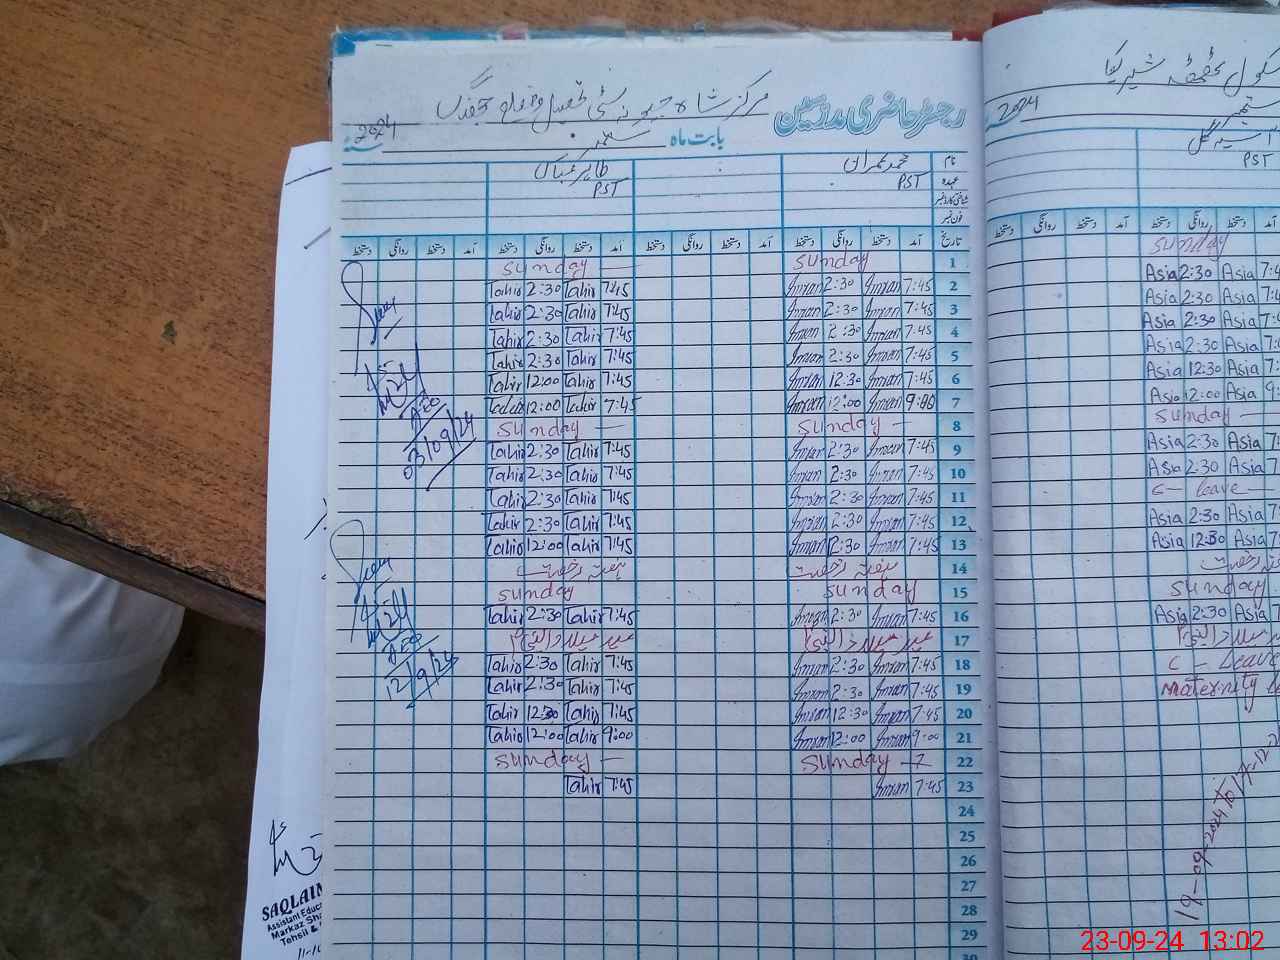 رجسٹر حاضری مدرسین
مرکز شاہ جیونہ سٹی تحصیل و ضلع جھنگ
بابت ماہ ستمبر 2024
نام محمد عمران طاہر عباس
عہدہ PST PST
شناختی کارڈ نمبر
فون نمبر
تاریخ آمد دستخط روانگی دستخط آمد دستخط روانگی دستخط آمد دستخط روانگی دستخط آمد دستخط روانگی دستخط
1 Sunday Sunday
2 7:45 Imran 2:30 Imran 7:45 Tahir 2:30 Tahir
3 7:45 Imran 2:30 Imran 7:45 Tahir 2:30 Tahir
4 7:45 Imran 2:30 Imran 7:45 Tahir 2:30 Tahir
5 7:45 Imran 2:30 Imran 7:45 Tahir 2:30 Tahir
6 7:45 Imran 12:30 Imran 7:45 Tahir 12:00 Tahir
7 9:00 Imran 12:00 Imran 7:45 Tahir 12:00 Tahir
8 Sunday Sunday
9 7:45 Imran 2:30 Imran 7:45 Tahir 2:30 Tahir
10 7:45 Imran 2:30 Imran 7:45 Tahir 2:30 Tahir
11 7:45 Imran 2:30 Imran 7:45 Tahir 2:30 Tahir
12 7:45 Imran 2:30 Imran 7:45 Tahir 2:30 Tahir
13 7:45 Imran 12:30 Imran 7:45 Tahir 12:00 Tahir
14 ہفتہ رخصت ہفتہ رخصت
15 Sunday Sunday
16 7:45 Imran 2:30 Imran 7:45 Tahir 2:30 Tahir
17 عید میلاد النبی عید میلاد النبی
18 7:45 Imran 2:30 Imran 7:45 Tahir 2:30 Tahir
19 7:45 Imran 2:30 Imran 7:45 Tahir 2:30 Tahir
20 7:45 Imran 12:30 Imran 7:45 Tahir 12:30 Tahir
21 9:00 Imran 12:00 Imran 9:00 Tahir 12:00 Tahir
22 Sunday Sunday
23 7:45 Imran 7:45 Tahir
24
25
26
27
28
29
30
AEO
03/09/24
AEO
12/9/24
2024
PST
آمد دستخط روانگی دستخط
Sunday
Asia 2:30 Asia
Asia 2:30 Asia
Asia 2:30 Asia
Asia 2:30 Asia
Asia 12:30 Asia
Asia 12:00 Asia
Sunday
Asia 2:30 Asia
Asia 2:30 Asia
C - leave
Asia 2:30 Asia
Asia 12:30 Asia
Sunday
Asia 2:30 Asia
C - Leave
Maternity
19-09-2024 To
SAQLAIN
Assistant Educ
Markaz Sha
Tehsil &
23-09-24 13:02